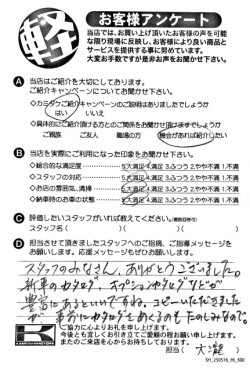 軽
お客様アンケート
当店では、お買い上げ頂いたお客様の声を可能
な限り現場に反映し、お客様により良い商品と
サービスを提供する事に努めています。
大変お手数ですが是非お声をお聞かせ下さい。
A 当店はご紹介を大切にしてあります。
ご紹介キャンペーンについてお聞かせ下さい。
◇カミタケご紹介キャンペーンのご説明はありましたでしょうか
はい いいえ
◇具体的にご紹介頂ける方とのご関係をお聞かせ頂けますでしょうか
ご親族 ご友人 職場の方 機会があれば紹介したい
B 当店を実際にご利用になった印象をお聞かせ下さい。
◇総合的な満足度 5.大満足 4.満足 3.ふつう 2.やや不満 1.不満
◇スタッフの対応 5.大満足 4.満足 3.ふつう 2.やや不満 1.不満
◇お店の雰囲気、清掃 5.大満足 4.満足 3.ふつう 2.やや不満 1.不満
◇納車時のお車の状態 5.大満足 4.満足 3.ふつう 2.やや不満 1.不満
C 評価したいスタッフがいれば教えてください。(複数回答可)
スタッフ名( )( )( )
D 担当させて頂きましたスタッフへのご指摘、ご指導メッセージを
お願いします。応援メッセージもぜひお願いします。
スタッフのみなさん、ありがとうございました。
新車のカタログ、オプションカタログなどが
豊富にあるといいですね。コピーいただきました
が 事前にカタログをめくるのもたのしみなので。
K
ご協力に心よりお礼を申し上げます。
今後とも宜しくお引き立てご愛顧の程お願い申し上げます。
またのご来店を心からお待ちしております。
担当( 大瀧 )
SH_250516_HI_500